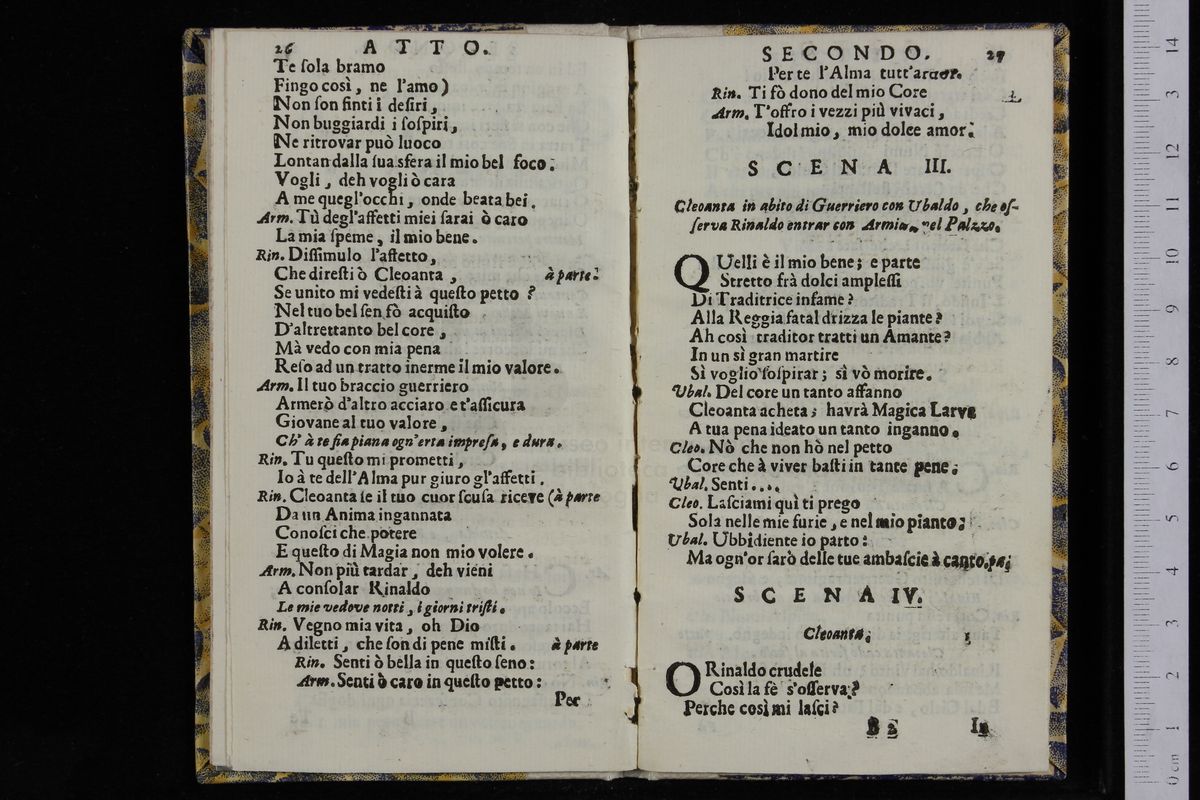 26 ATTO.
Te ſola bramo
Fingo così, ne l'amo)
Non ſon finti i deſiri,
Non buggiardi i ſoſpiri,
Ne ritrovar può luoco
Lontan dalla ſua sfera il mio bel foco.
Vogli, deh vogli ò cara
A me quegl'occhi, onde beata bei.
Arm. Tù degl'affetti miei ſarai ò caro
La mia ſpeme, il mio bene.
Rin. Diſſimulo l'affetto,
Che direſti ò Cleoanta, à parte.
Se unito mi vedeſti à queſto petto?
Nel tuo bel ſen fò acquiſto
D'altrettanto bel core,
Mà vedo con mia pena
Reſo ad un tratto inerme il mio valore.
Arm. Il tuo braccio guerriero
Armerò d'altro acciaro e t'aſſicura
Giovane al tuo valore,
Ch' à te fia piana ogn'erta impreſa, e dura.
Rin. Tu queſto mi prometti,
Io à te dell'Alma pur giuro gl'affetti.
Rin. Cleoanta ſe il tuo cuor ſcuſa riceve (à parte
Da un Anima ingannata
Conoſci che potere
E queſto di Magia non mio volere.
Arm. Non più tardar, deh vieni
A conſolar Rinaldo
Le mie vedove notti, i giorni triſti.
Rin. Vegno mia vita, oh Dio
A diletti, che ſon di pene miſti. à parte
Rin. Senti ò bella in queſto ſeno:
Arm. Senti ò caro in queſto petto:
Per
SECONDO. 27
Per te l'Alma tutt'ardor.
Rin. Ti fò dono del mio Core
Arm. T'offro i vezzi più vivaci,
Idol mio, mio dolce amor.
SCENA III.
Cleoanta in abito di Guerriero con Ubaldo, che oſ-
ſerva Rinaldo entrar con Armida nel Palzzo.
QUelli è il mio bene; e parte
Stretto frà dolci ampleſſi
Di Traditrice infame?
Alla Reggia fatal drizza le piante?
Ah così traditor tratti un Amante?
In un sì gran martire
Sì voglio ſoſpirar; sì vò morire.
Ubal. Del core un tanto affanno
Cleoanta acheta; havrà Magica Larva
A tua pena ideato un tanto inganno.
Cleo. Nò che non hò nel petto
Core che à viver baſti in tante pene;
Ubal. Senti....
Cleo. Laſciami quì ti prego
Sola nelle mie furie, e nel mio pianto.
Ubal. Ubbidiente io parto:
Ma ogn'or ſarò delle tue ambaſcie à canto. pa;
SCENA IV.
Cleoanta;
O Rinaldo crudele
Così la fè s'oſſerva?
Perche così mi laſci?
B 2 In